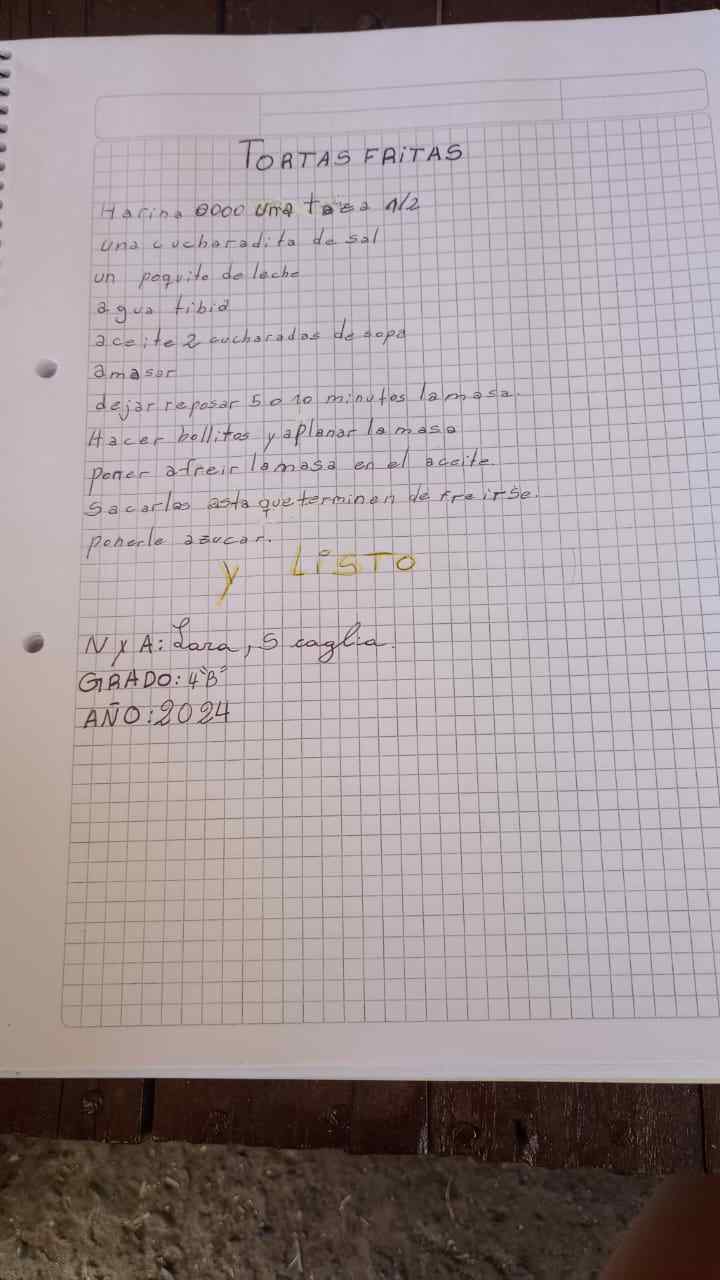 TORTAS FRITAS
Harina 0000 una taza 1/2
una cucharadita de sal
un poquito de leche
agua tibia
aceite 2 cucharadas de sopa
amasar
dejar reposar 5 o 10 minutos la masa.
Hacer bollitos y aplanar la masa
poner a freir la masa en el aceite.
Sacarlas asta que terminen de freirse.
ponerle azucar.
Y LiSTO
N y A: Lara, Scaglia.
GRADO: 4"B"
AÑO: 2024